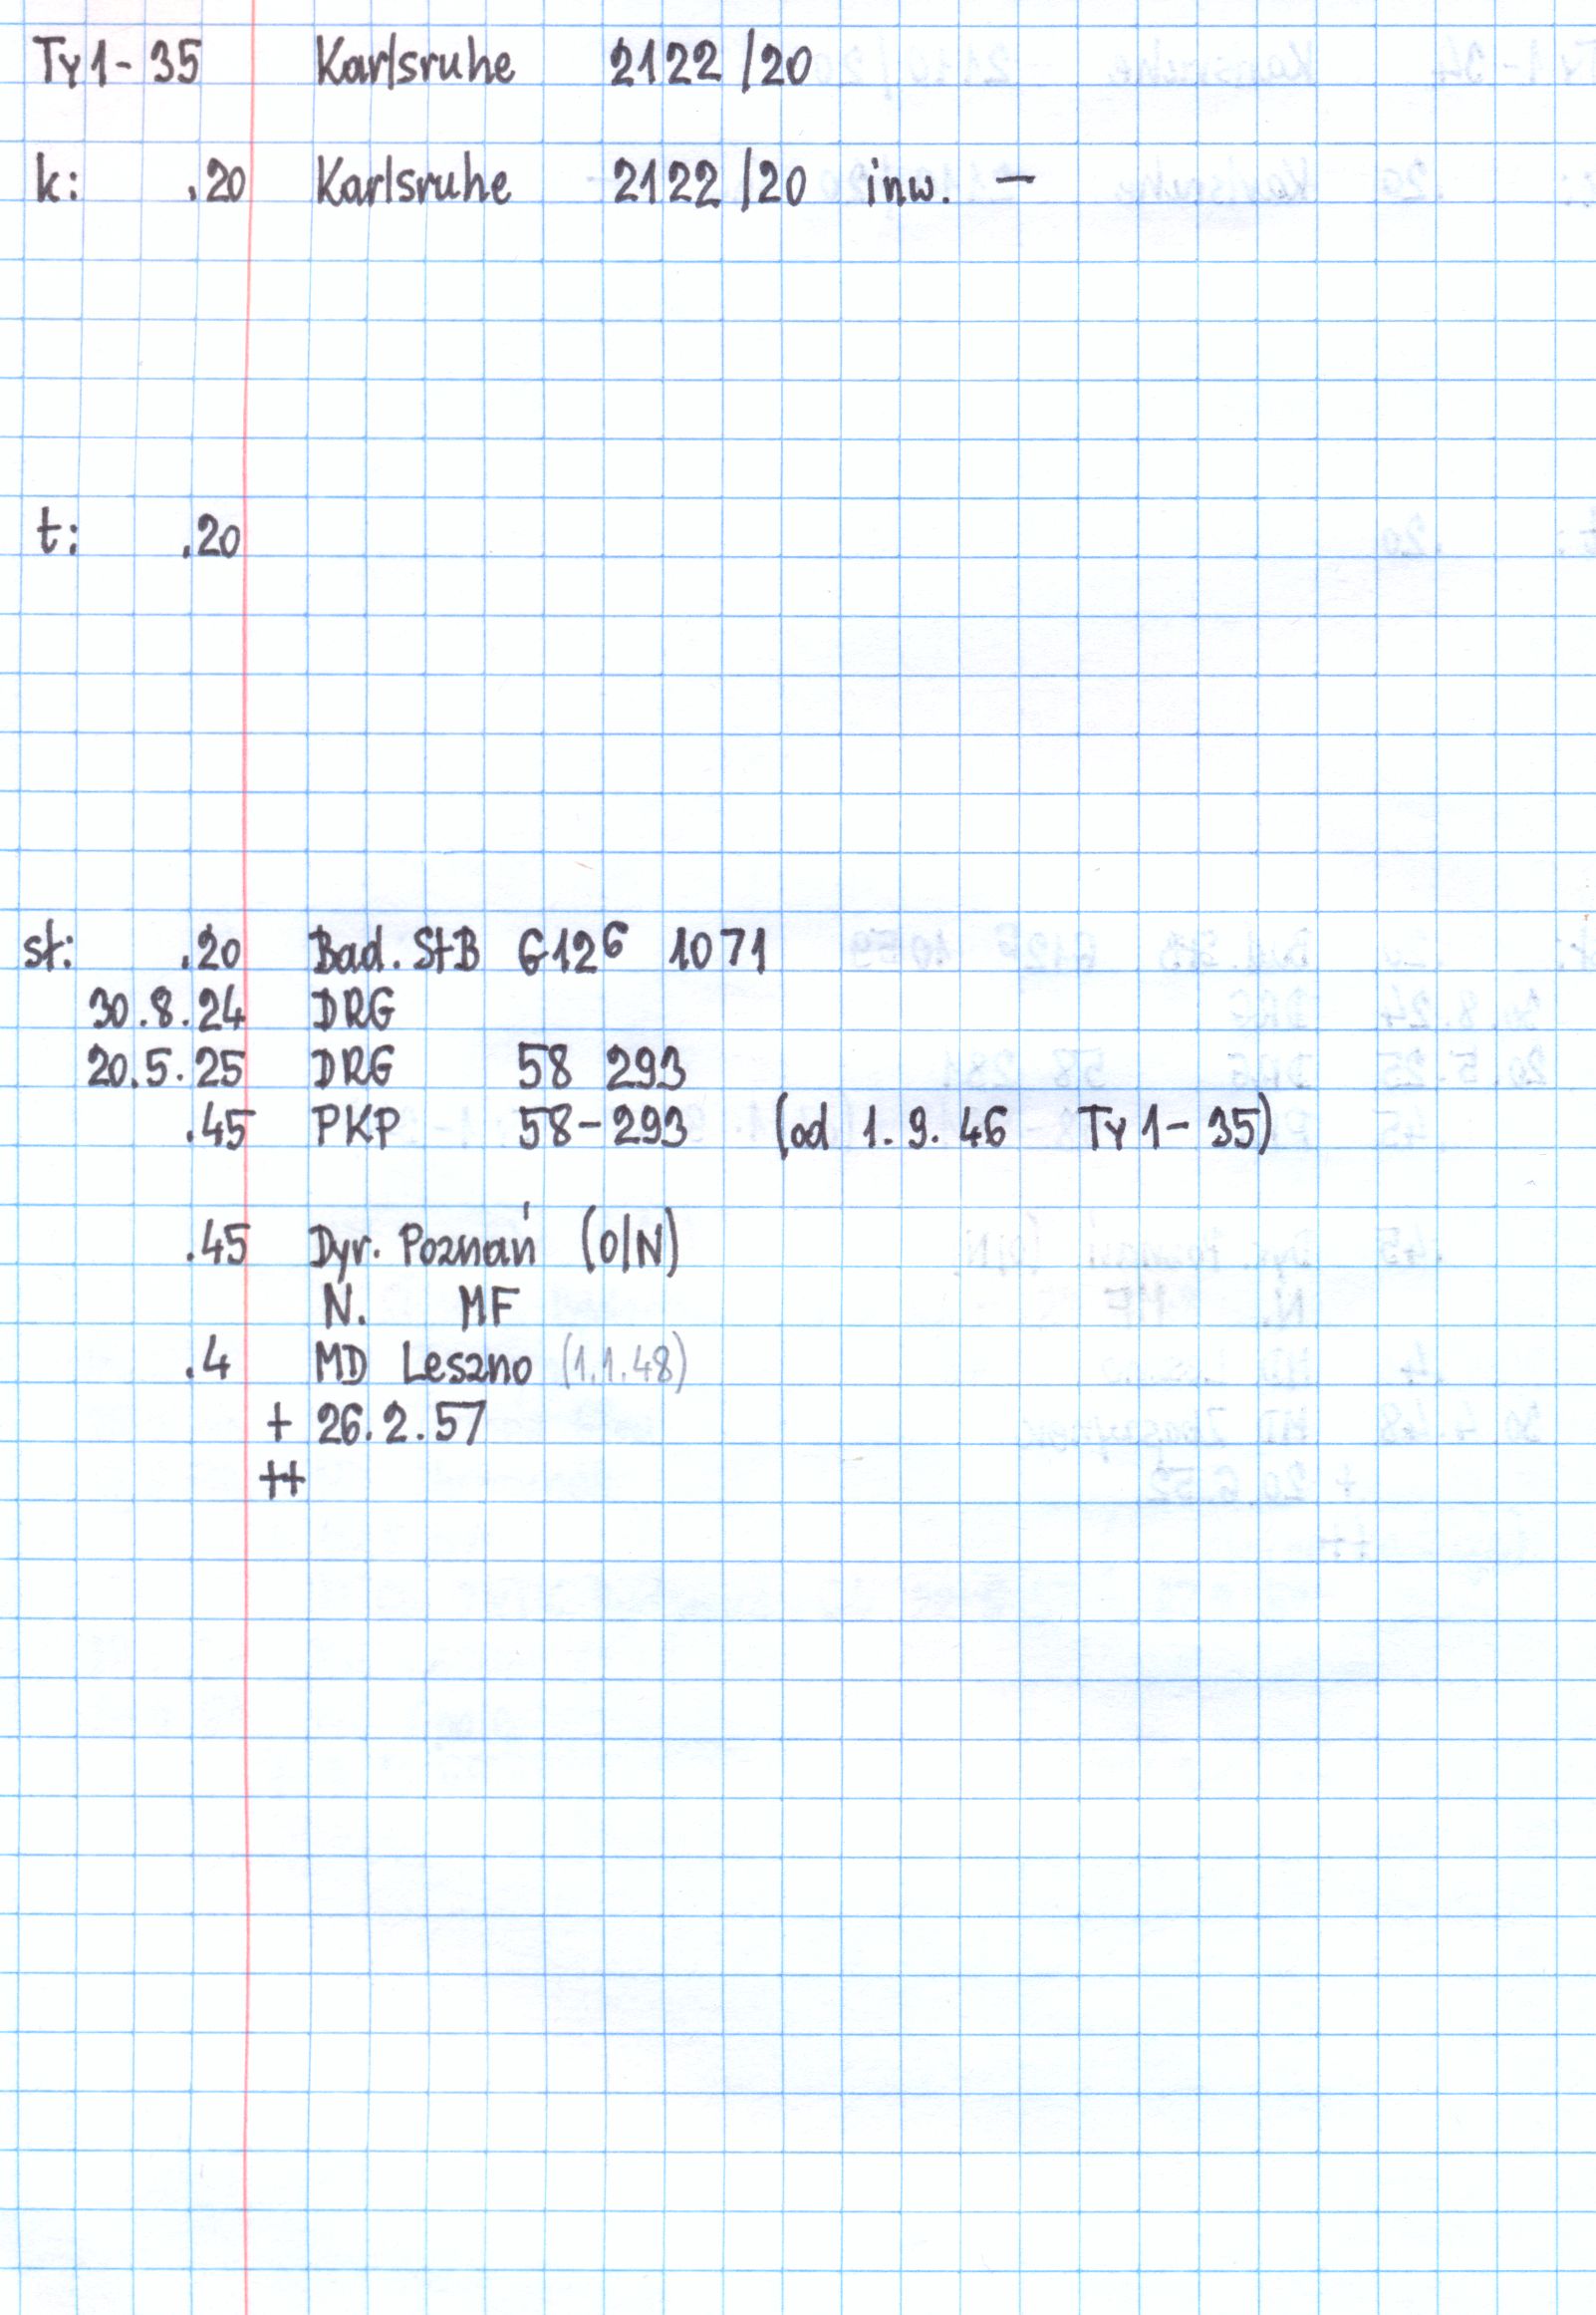 Ty1-35 Karlsruhe 2122/20
k: .20 Karlsruhe 2122/20 inw. —
t: .20
st: .20 Bad. StB G12⁶ 1071
30.8.24 DRG
20.5.25 DRG 58 293
.45 PKP 58-293 (od 1.9.46 Ty1-35)
.45 Dyr. Poznań (O/N)
N. MF
.4 MD Leszno (1.1.48)
+ 26.2.57
++